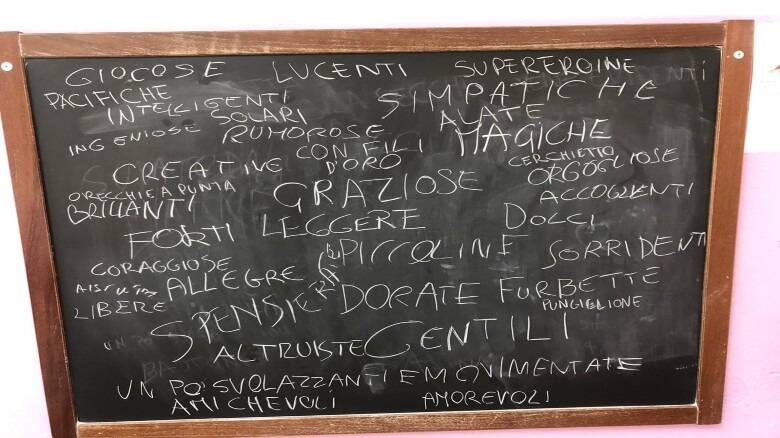 GIOCOSE LUCENTI SUPEREROINE
PACIFICHE SIMPATICHE
INTELLIGENTI SOLARI ALATE
INGENIOSE RUMOROSE MAGICHE
CON FILI D'ORO CERCHIETTO
CREATIVE ORGOGLIOSE
ORECCHIE A PUNTA GRAZIOSE ACCOGLIENTI
BRILLANTI LEGGERE DOLCI
FORTI PICCOLINE SORRIDENTI
CORAGGIOSE ALLEGRE FURBETTE
LIBERE SPENSIERATE DORATE PUNGIGLIONE
ALTRUISTE GENTILI
UN PO' SVOLAZZANTI E MOVIMENTATE
AMICHEVOLI AMOREVOLI